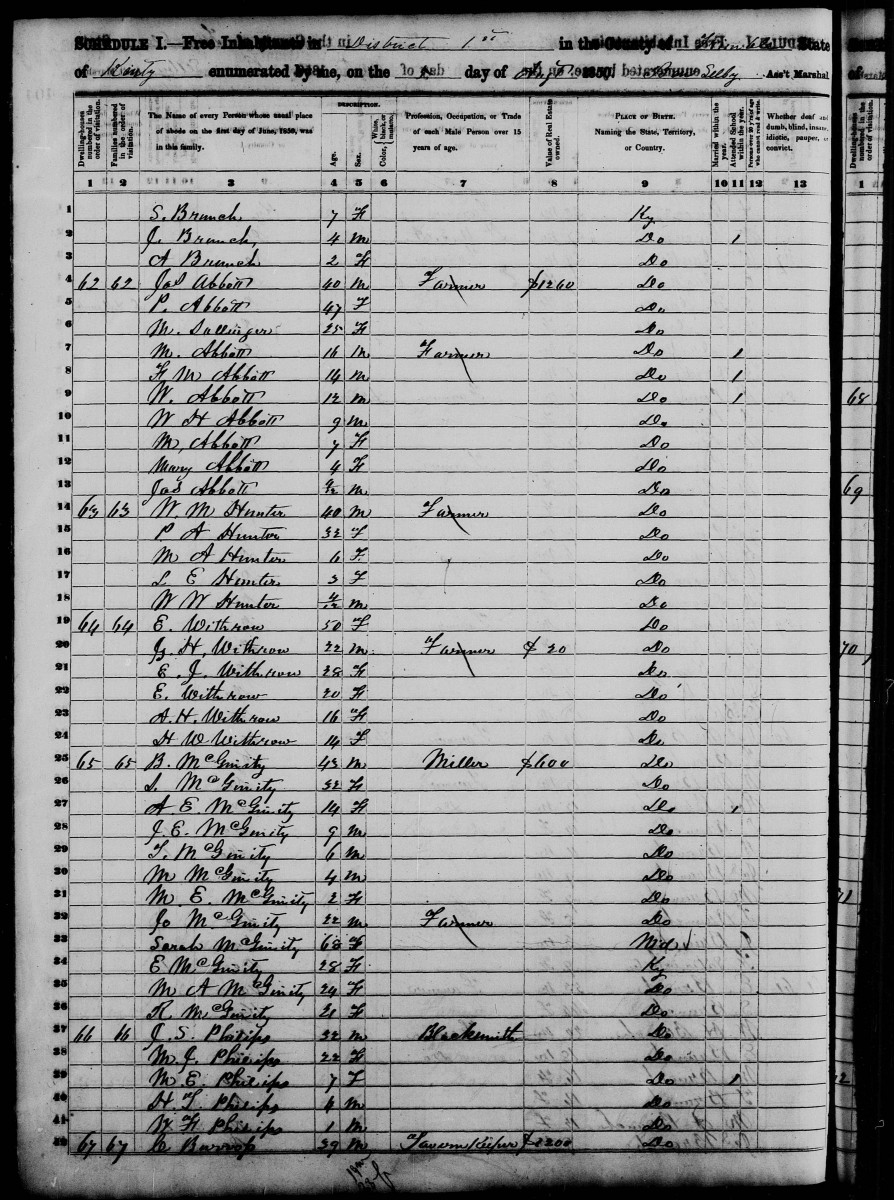 SCHEDULE I.—Free Inhabitants in District 1st in the County of State
of enumerated by me, on the day of 1850. Selby Ass't Marshal
Dwelling-houses numbered in the order of visitation.
Families numbered in the order of visitation.
The Name of every Person whose usual place of abode on the first day of June, 1850, was in this family.
DESCRIPTION.
Age.
Sex.
Color, White, black, or mulatto.
Profession, Occupation, or Trade of each Male Person over 15 years of age.
Value of Real Estate owned.
PLACE OF BIRTH. Naming the State, Territory, or Country.
Married within the year.
Attended School within the year.
Persons over 20 y'rs of age who cannot read & write.
Whether deaf and dumb, blind, insane, idiotic, pauper, or convict.
1 2 3 4 5 6 7 8 9 10 11 12 13
1 S. Branch 7 F Ky
2 J. Branch 4 M Do 1
3 A Branch 2 F Do
4 62 62 Jas Abbott 40 M Farmer $1260 Do
5 P. Abbott 47 F Do
6 M. Sullinger 25 F Do
7 M. Abbott 16 M Farmer Do 1
8 F M Abbott 14 M Do 1
9 W. Abbott 12 M Do 1
10 W H Abbott 9 M Do
11 M, Abbott 7 F Do
12 Mary Abbott 4 F Do
13 Jas Abbott M Do
14 63 63 W M Hunter 40 M Farmer Do
15 P A Hunter 32 F Do
16 M A Hunter 6 F Do
17 L E Hunter 3 F Do
18 W W Hunter 4/12 M Do
19 64 64 E. Withrow 50 F Do
20 H. Withrow 22 M Farmer $ 20 Do
21 E. J. Withrow 28 F Do
22 E. Withrow 20 F Do
23 A. H. Withrow 16 F Do
24 H W Withrow 14 F Do
25 65 65 B. McGinity 43 M Miller $600 Do
26 S. McGinity 32 F Do
27 A E. McGinity 14 F Do 1
28 J. E. McGinity 9 M Do
29 T. McGinity 6 M Do
30 M McGinity 4 M Do
31 M. E. McGinity 2 F Do
32 Jo McGinity 22 M Farmer Do
33 Sarah McGinity 68 F Md
34 E McGinity 28 F Ky
35 M A McGinity 24 F Do
36 R. McGinity 21 F Do
37 66 66 J. S. Philips 32 M Blacksmith Do
38 M. J. Philips 22 F Do
39 M. E. Philips 7 F Do 1
40 H. T. Philips 4 M Do
41 W F Philips 1 M Do
42 67 67 C Burrop 39 M Tavern Keeper $2200 Do
1
68
69
70